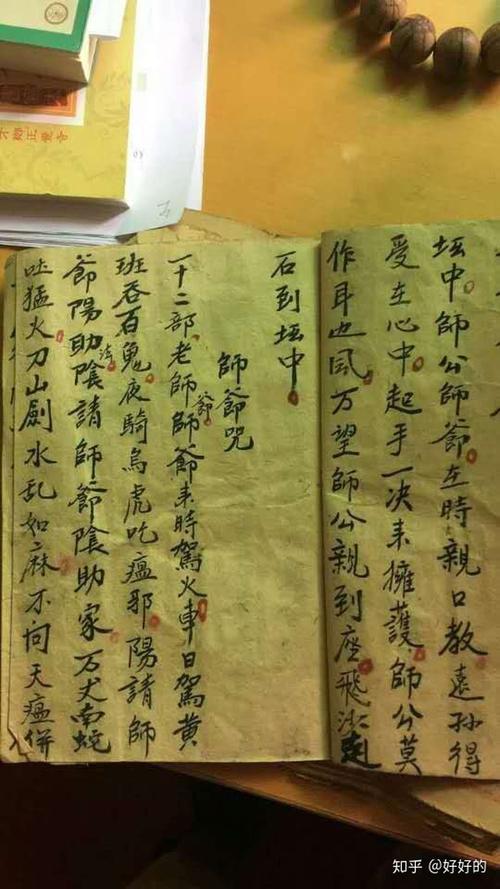 坛中師公師爺在時親口教遠孫得
受在心中起手一决来擁護師公莫
作耳边风万望師公親到座飛沙走
石到坛中
師爺咒
一十二部老師爺師爺来時駕火車日駕黄
班吞百鬼夜騎烏虎吃瘟邪陽請師
爺陽助法陰請師爺陰助家万丈南蛇
吐猛火刀山劍水乱如麻不问天瘟併
知乎 @好好的